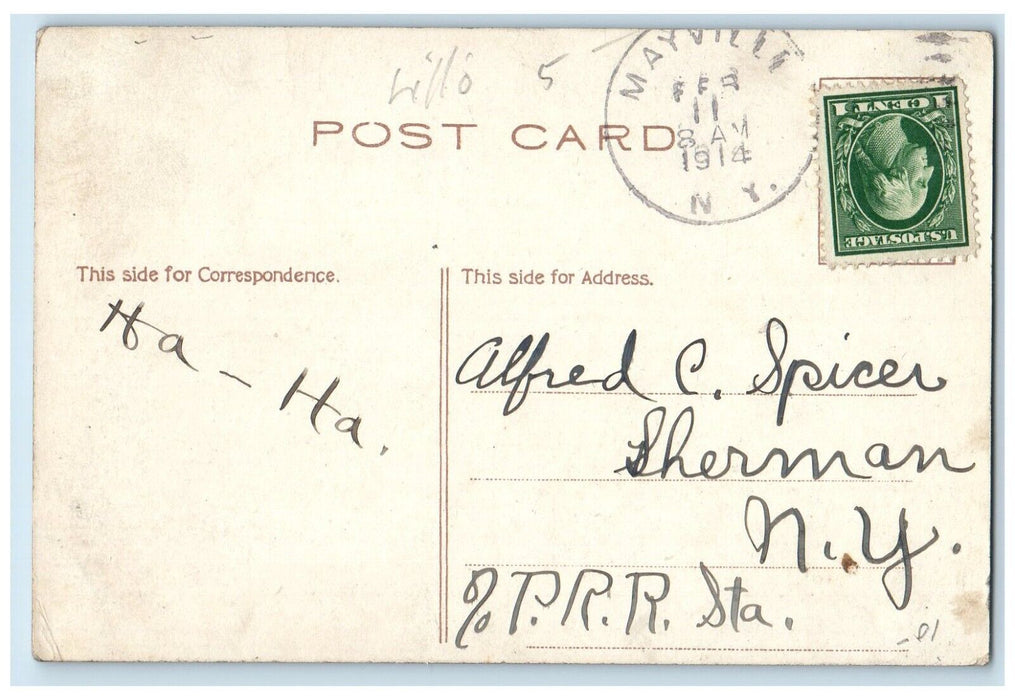 5
POST CARD
MAYVILLE
FEB
11
8 AM
1914
N. Y.
1 CENT 1
U.S. POSTAGE
This side for Correspondence.
Ha - Ha.
This side for Address.
Alfred C. Spicer
Sherman
N.Y.
% P.R.R. Sta.